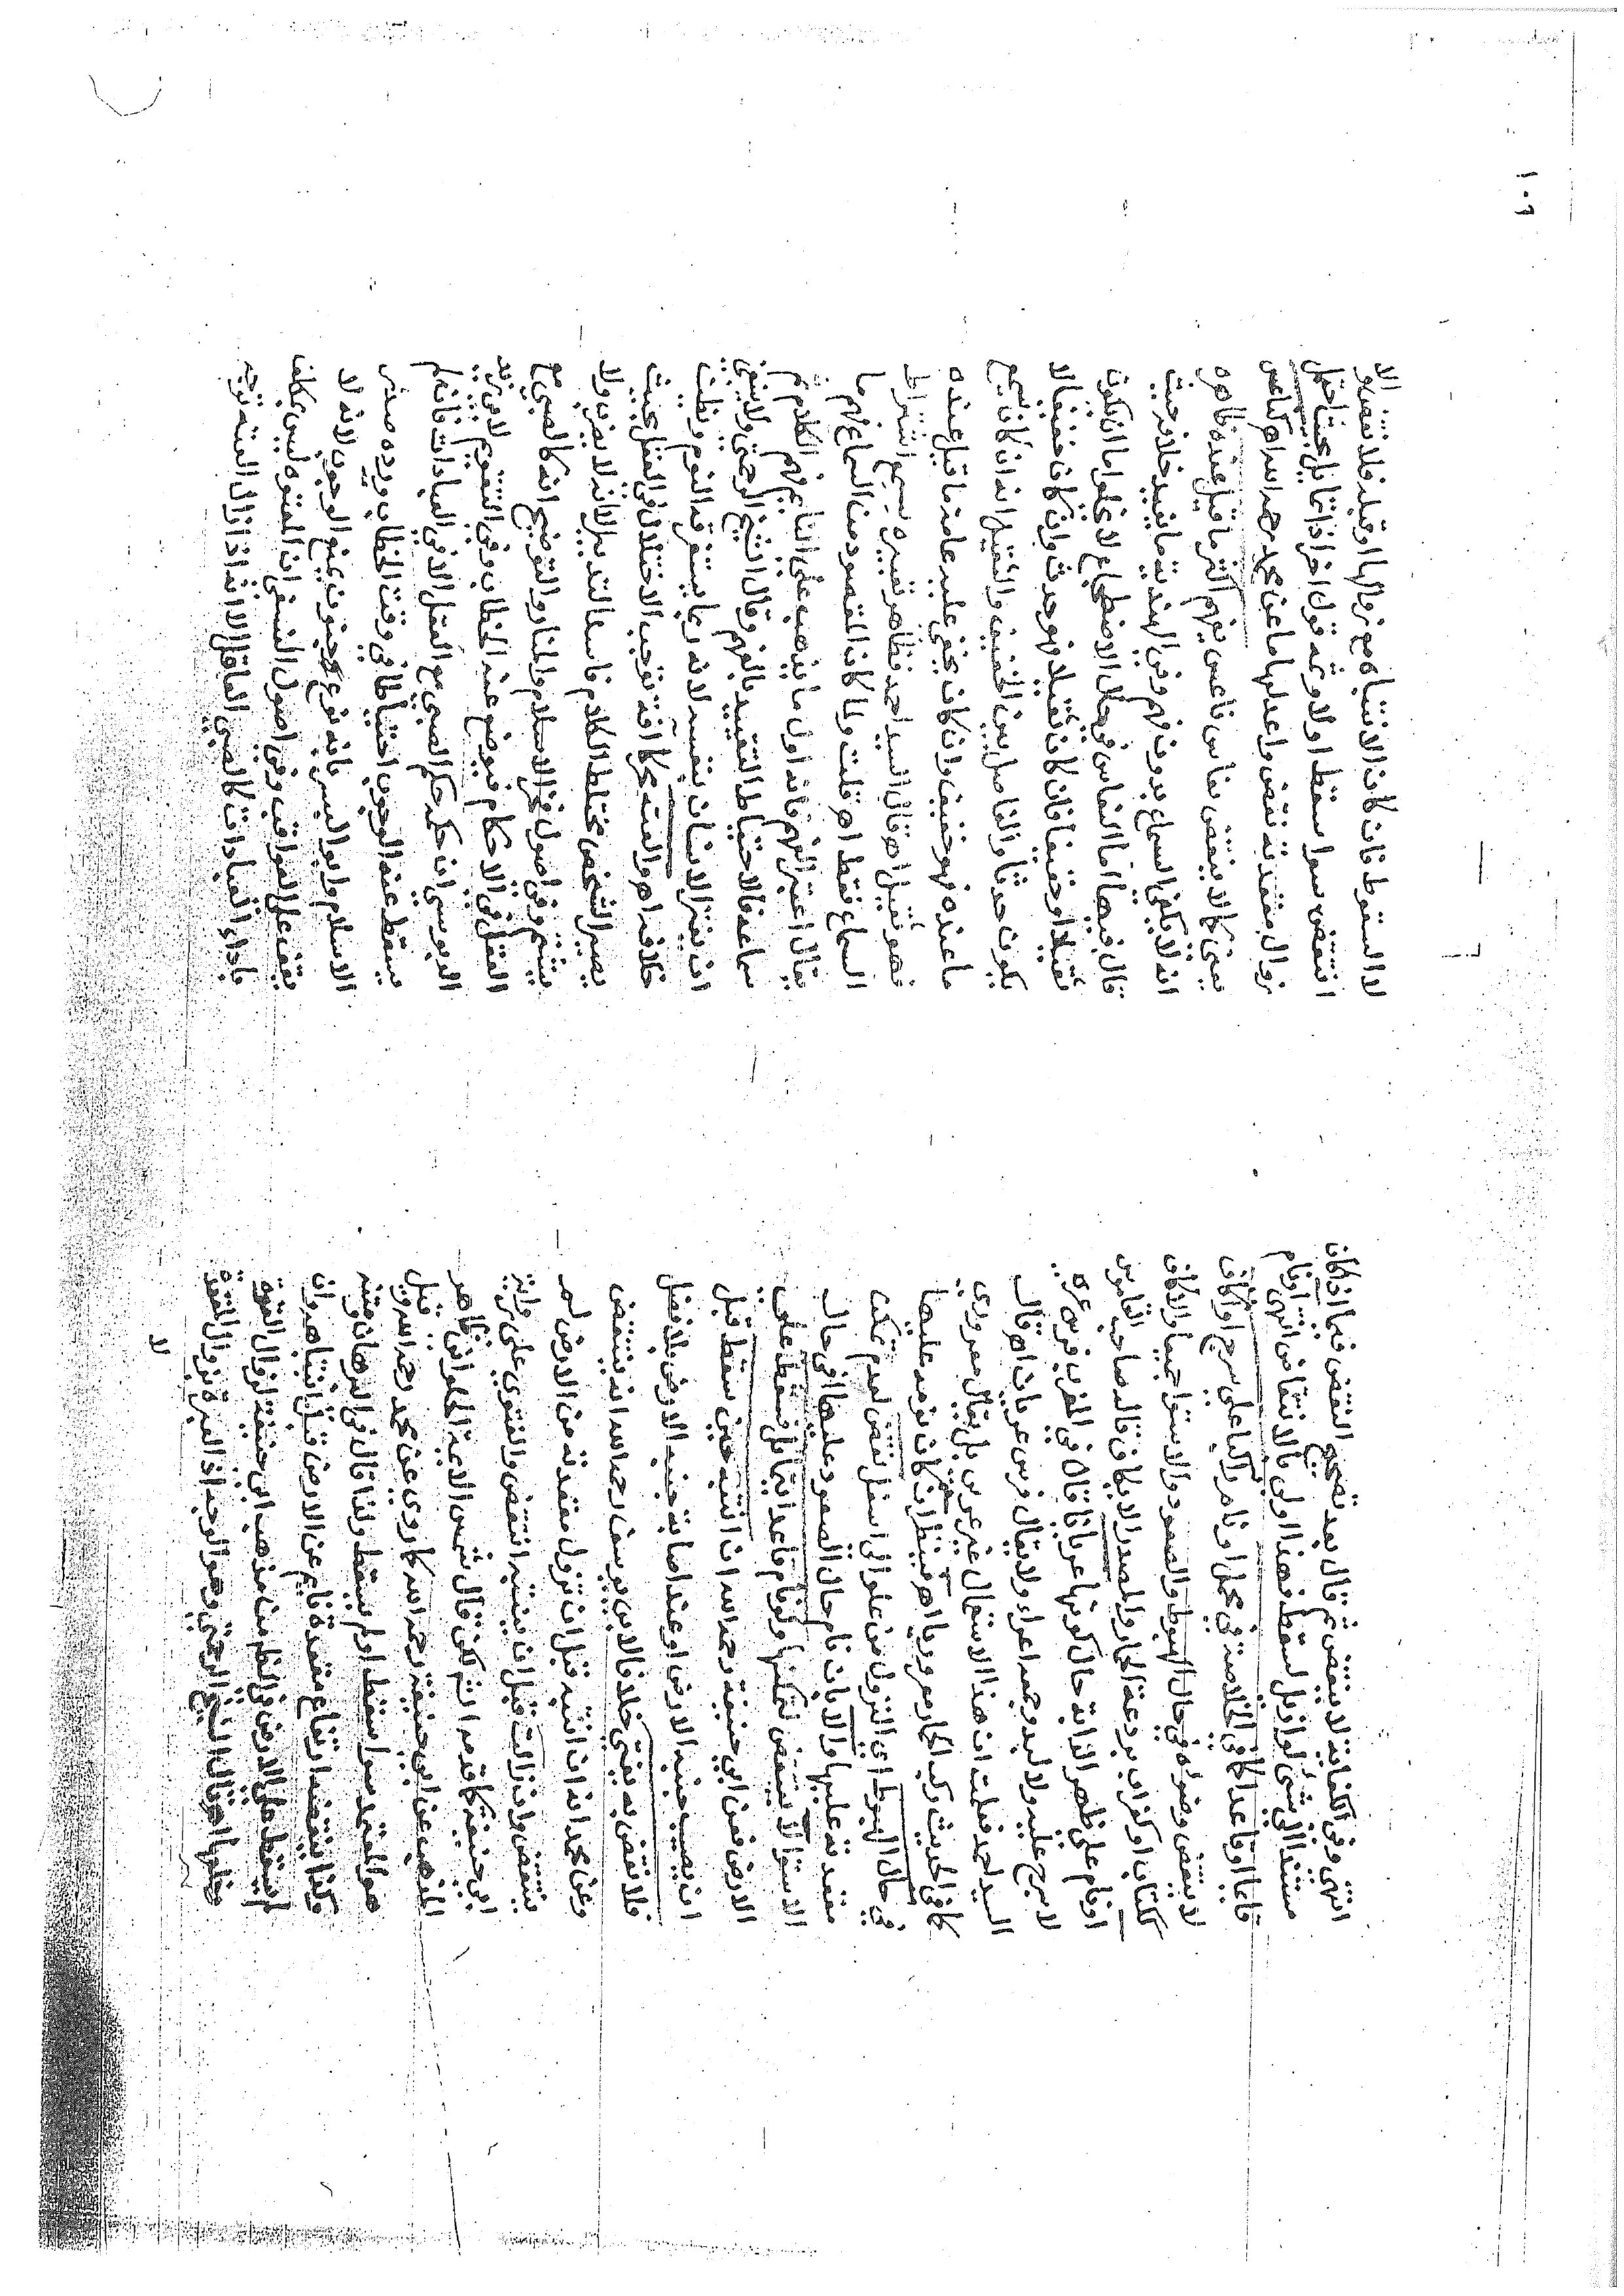 انتهى وفي الكفاية لا ينتقض ثم قال بعد تصحيح النقض فيما اذا كان
مستندا الى شئ لو ازيل لسقط فهذا اولى بالانتقاض انتهى او نام
قايما او قاعدا كما في الخلاصة في محمل او نام راكبا على سرج او اكاف
لا ينتقض وضوءه في حال الهبوط والصعود والاستوا جميعا والاكاف
ككتاب او كغراب بردعة الحمار والمصدر الايكاف قاله صاحب القاموس
او نام على ظهر الدابة حال كونها عريانا قال في المغرب فرس عري
لا سرج عليه ولا لبد وجمعه اعراء ولا يقال فرس عريان اهـ قال
السيد احمد قلت ان هذا الاستعمال غير بل يقال معروري
كما في الحديث ركب الحمار معروريا اهـ فينظر ان كان نومه عليها
في حال الهبوط اي النزول من علو الى اسفل نقض لعدم تمكن
مقعدته عليها والا بان نام حال الصعود عليها او في حال
الاستوا لا ينتقض لتمكنها ولو نام قاعدا يتمايل فسقط على
الارض فعن ابي حنيفة رحمه الله ان انتبه حين سقط قبل
ان يصيب جنبه الارض او عند اصابة جنبه الارض بلا فصل
فلا نقض به يفتى خلافا لابي يوسف رحمه الله انه ينتقض
وعن محمد انه ان انتبه قبل ان تزول مقعدته من الارض لم
ينتقض وان زالت قبل ان ينتبه انتقض والفتوى على رواية
ابي حنيفة كما قدمه انتهى لكن قال شمس الايمة الحلواني ظاهر
المذهب عن ابي حنيفة رحمه الله كما روي عن محمد رحمه الله وقيل
هو المعتمد سوا سقط او لم يسقط ولذا قال في البرهان ومتنه
وكذا ينقضه ارتفاع مقعدة نايم عن الارض قبل انتباهه وان
لم يسقط على الارض في من مذهب ابي حنيفة لزوال
اهـ وقال الشيخ الرحمتي وهو الاوجه اذ العبرة بزوال المقعدة
لا
١٠٦
لا السقوط فان كان الانتباه مع زوالها او قبله فلا نقض والا
انتقض سوا سقط اولا وعمه قول اخر اذا تمايل بحيث احتمل
زوال مقعدته نقض واعدلها ما عن محمد رحمه الله اهـ كناعس
يعني كما لا ينتقض نعاس ناعس يفهم اكثر ما قيل عنده ظاهره
انه لا يكفي السماع بدون فهم وفي الهندية ما يفيد خلافه حيث
قال فيها اما النعاس في حال الاضطجاع لا يخلو اما ان يكون
ثقيلا او خفيفا فان كان ثقيلا فهو حدث وان كان خفيفا لا
يكون حدثا والفاصل بين الخفيف والثقيل انه ان كان يسمع
ما عنده فهو خفيف وان كان يخفى عليه عامة ما قيل عنده
فهو ثقيل اهـ قال السيد احمد فظاهر تعبيره بيسمع اشتراط
السماع فقط اهـ قلت ولما كان المقصود من السماع فهم ما
يقال اعتبر الفهم فانه اول ما يذهب عن الناعس فهم الكلام ثم
سماعه فالاحتياط التقييد بالفهم وقال الشيخ الرحمتي ولا ينبغي
ان يغتر الانسان بنفسه لانه ربما يستغرقه النوم ويظن
خلافه اهـ والعته محركا افة توجب الاختلال في العقل بحيث
يصير الشخص مختلط الكلام فاسد التدبير الا انه لا يضرب ولا
يشتم وفي اصول فخر الاسلام والمنار والتوضيح انه كالصبي مع
العقل في الاحكام فيوضع عنه الخطاب وفي التقويم لابي زيد
الدبوسي ان حكمه حكم الصبي مع العقل الا في العبادات فانه لم
يسقط عنه الوجوب احتياطا في وقت الخطاب ورده صدر
الاسلام وابو اليسر بانه نوع جنون يمنع الوجوب لانه لا
يقف على العواقب وفي اصول البستي ان المعتوه ليس بمكلف
باداء العبادات كالصبي العاقل الا انه اذا زال العته توجه